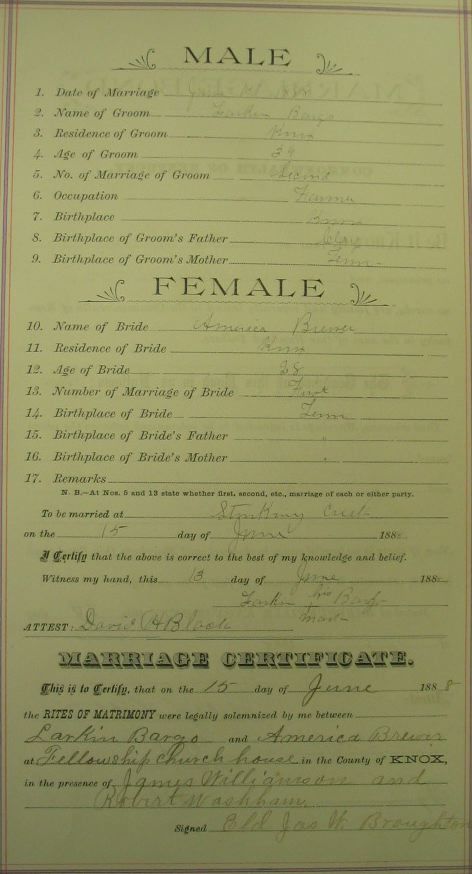 MALE
1. Date of Marriage
2. Name of Groom Larkin Bargo
3. Residence of Groom Knox
4. Age of Groom
5. No. of Marriage of Groom Second
6. Occupation Farmer
7. Birthplace
8. Birthplace of Groom's Father Clay
9. Birthplace of Groom's Mother Tenn
FEMALE
10. Name of Bride America Brewer
11. Residence of Bride Knox
12. Age of Bride 28
13. Number of Marriage of Bride First
14. Birthplace of Bride Tenn
15. Birthplace of Bride's Father "
16. Birthplace of Bride's Mother "
17. Remarks
N. B.—At Nos. 5 and 13 state whether first, second, etc., marriage of each or either party.
To be married at
on the 15 day of June 188
I Certify that the above is correct to the best of my knowledge and belief.
Witness my hand, this 13 day of June 188
Larkin his Bargo
mark
ATTEST: David H Black
MARRIAGE CERTIFICATE.
This is to Certify, that on the 15 day of June 1888
the RITES OF MATRIMONY were legally solemnized by me between
Larkin Bargo and America Brewer
at Fellowship church house in the County of KNOX,
in the presence of James Williamson and
Robert Washham
Signed Eld Jas W Broughton